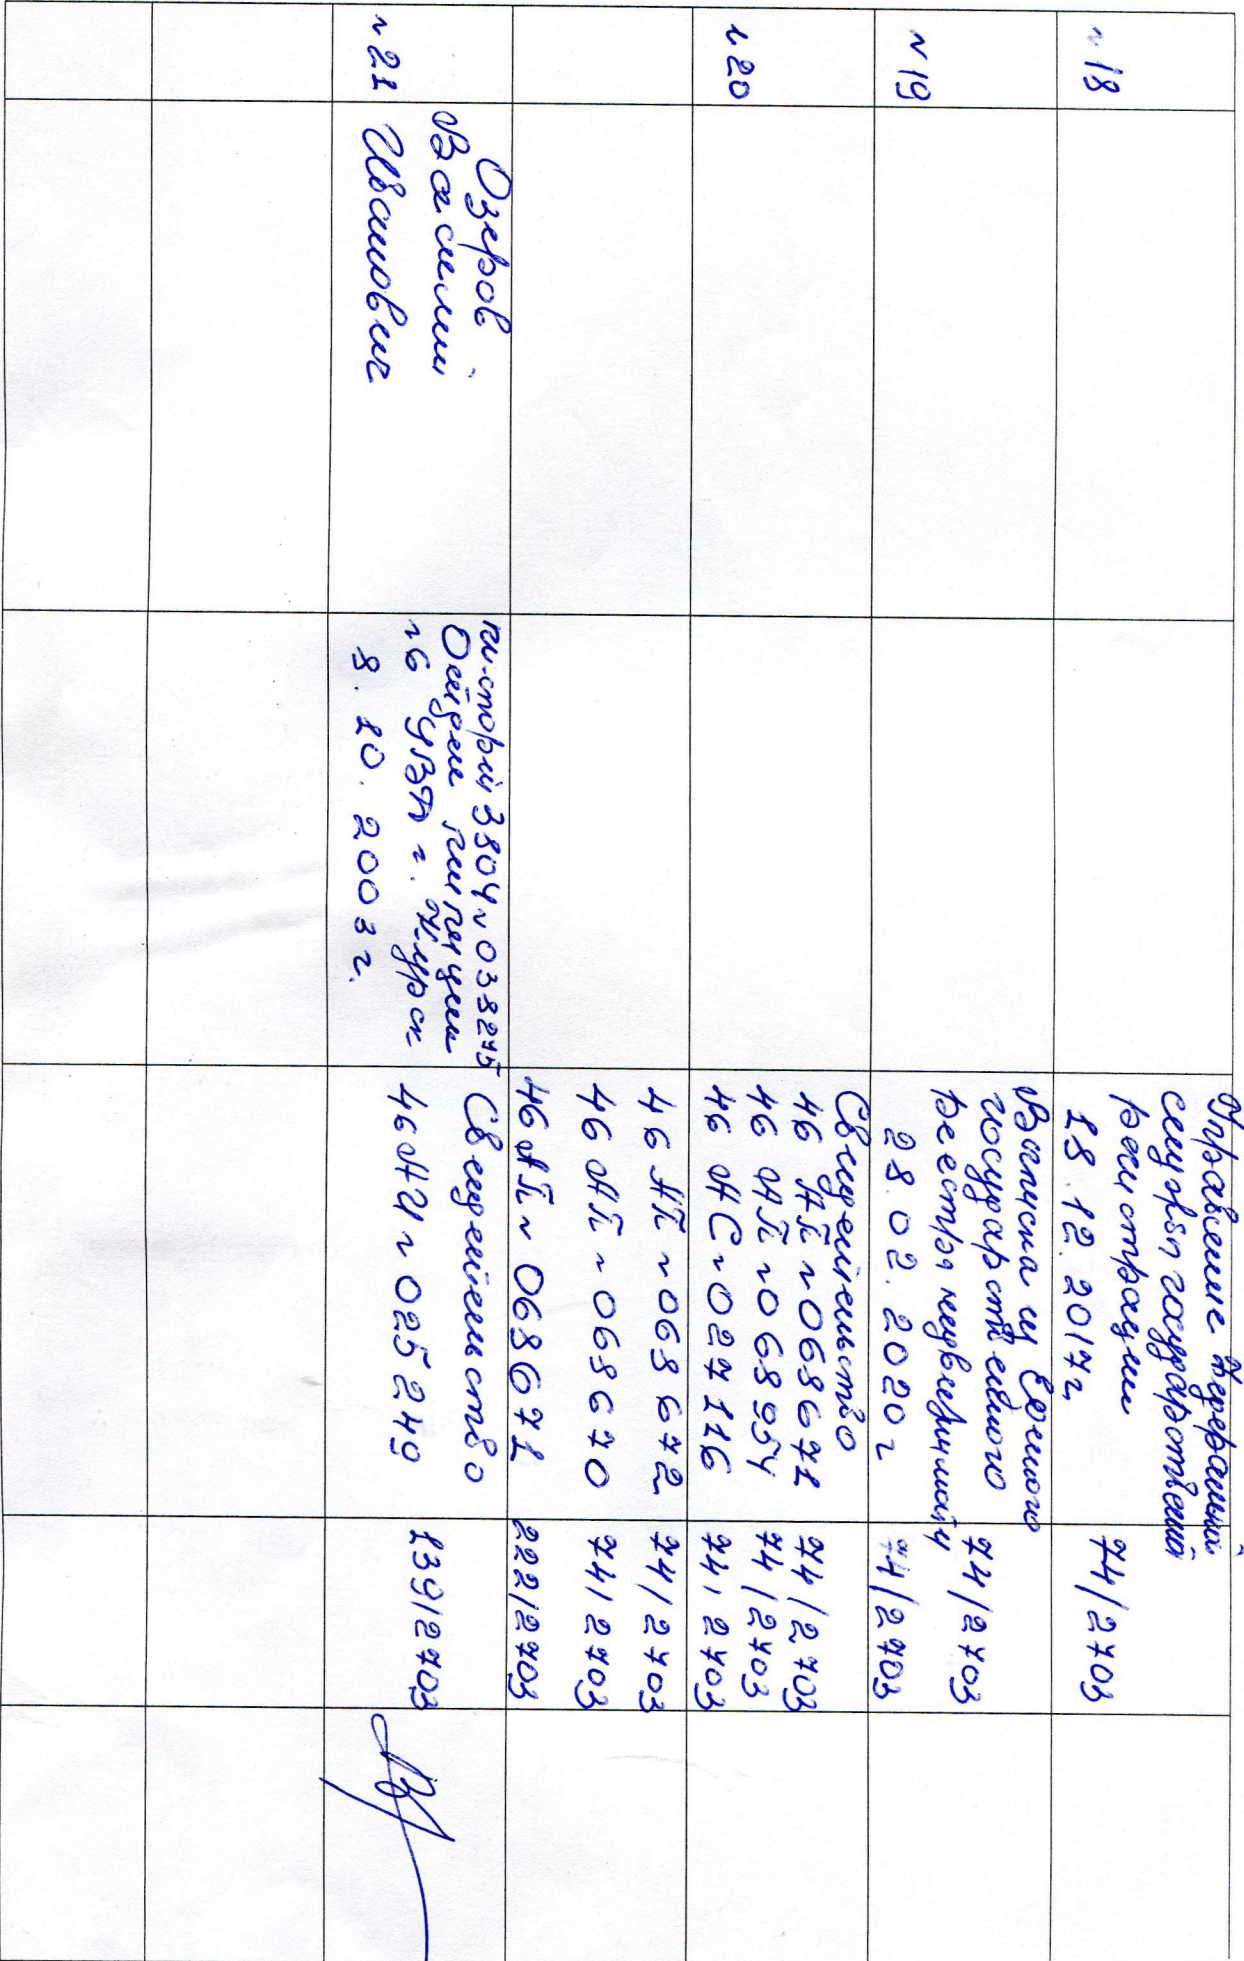 № 18
Управление Федеральной
службы государственной
регистрации
18.12.2017г.
74/2703
№ 19
Выписка из Единого
государственного
реестра недвижимости
28.02.2020 г
74/2703
74/2703
№ 20
Свидетельство
46 АК № 068671
46 АК № 068954
46 АС № 027116
74/2703
74/2703
74/2703
46 АК № 068672
46 АК № 068670
46 АК № 068671
74/2703
74/2703
222/2703
№ 21
Озеров
Василий
Иванович
3804 № 038275
Отдел милиции
№6 УВД г. Курск
8.10.2003г.
Свидетельство
46 АИ № 025249
139/2703